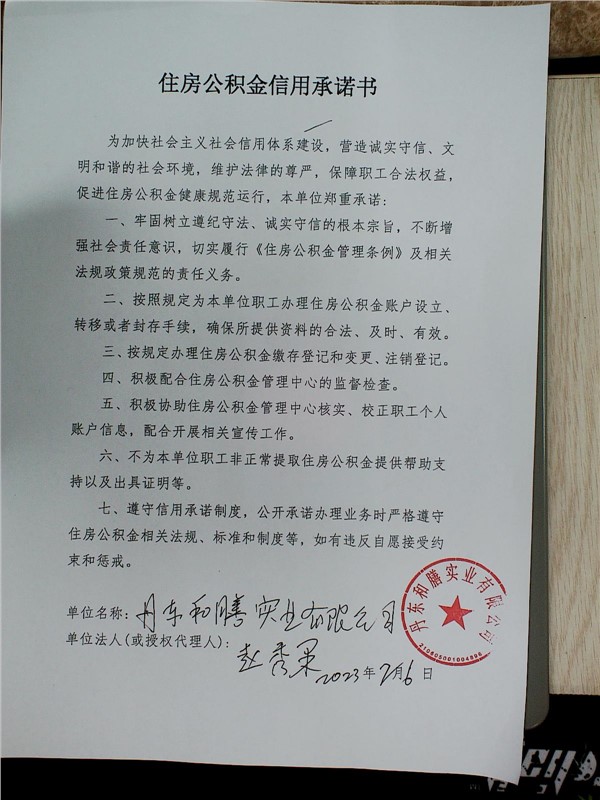 住房公积金信用承诺书
为加快社会主义社会信用体系建设，营造诚实守信、文
明和谐的社会环境，维护法律的尊严，保障职工合法权益，
促进住房公积金健康规范运行，本单位郑重承诺：
一、牢固树立遵纪守法、诚实守信的根本宗旨，不断增
强社会责任意识，切实履行《住房公积金管理条例》及相关
法规政策规范的责任义务。
二、按照规定为本单位职工办理住房公积金账户设立、
转移或者封存手续，确保所提供资料的合法、及时、有效。
三、按规定办理住房公积金缴存登记和变更、注销登记。
四、积极配合住房公积金管理中心的监督检查。
五、积极协助住房公积金管理中心核实、校正职工个人
账户信息，配合开展相关宣传工作。
六、不为本单位职工非正常提取住房公积金提供帮助支
持以及出具证明等。
七、遵守信用承诺制度，公开承诺办理业务时严格遵守
住房公积金相关法规、标准和制度等，如有违反自愿接受约
束和惩戒。
单位名称：丹东和膳实业有限公司
单位法人(或授权代理人)：赵秀
2023年2月6日
丹东和膳实业有限公司